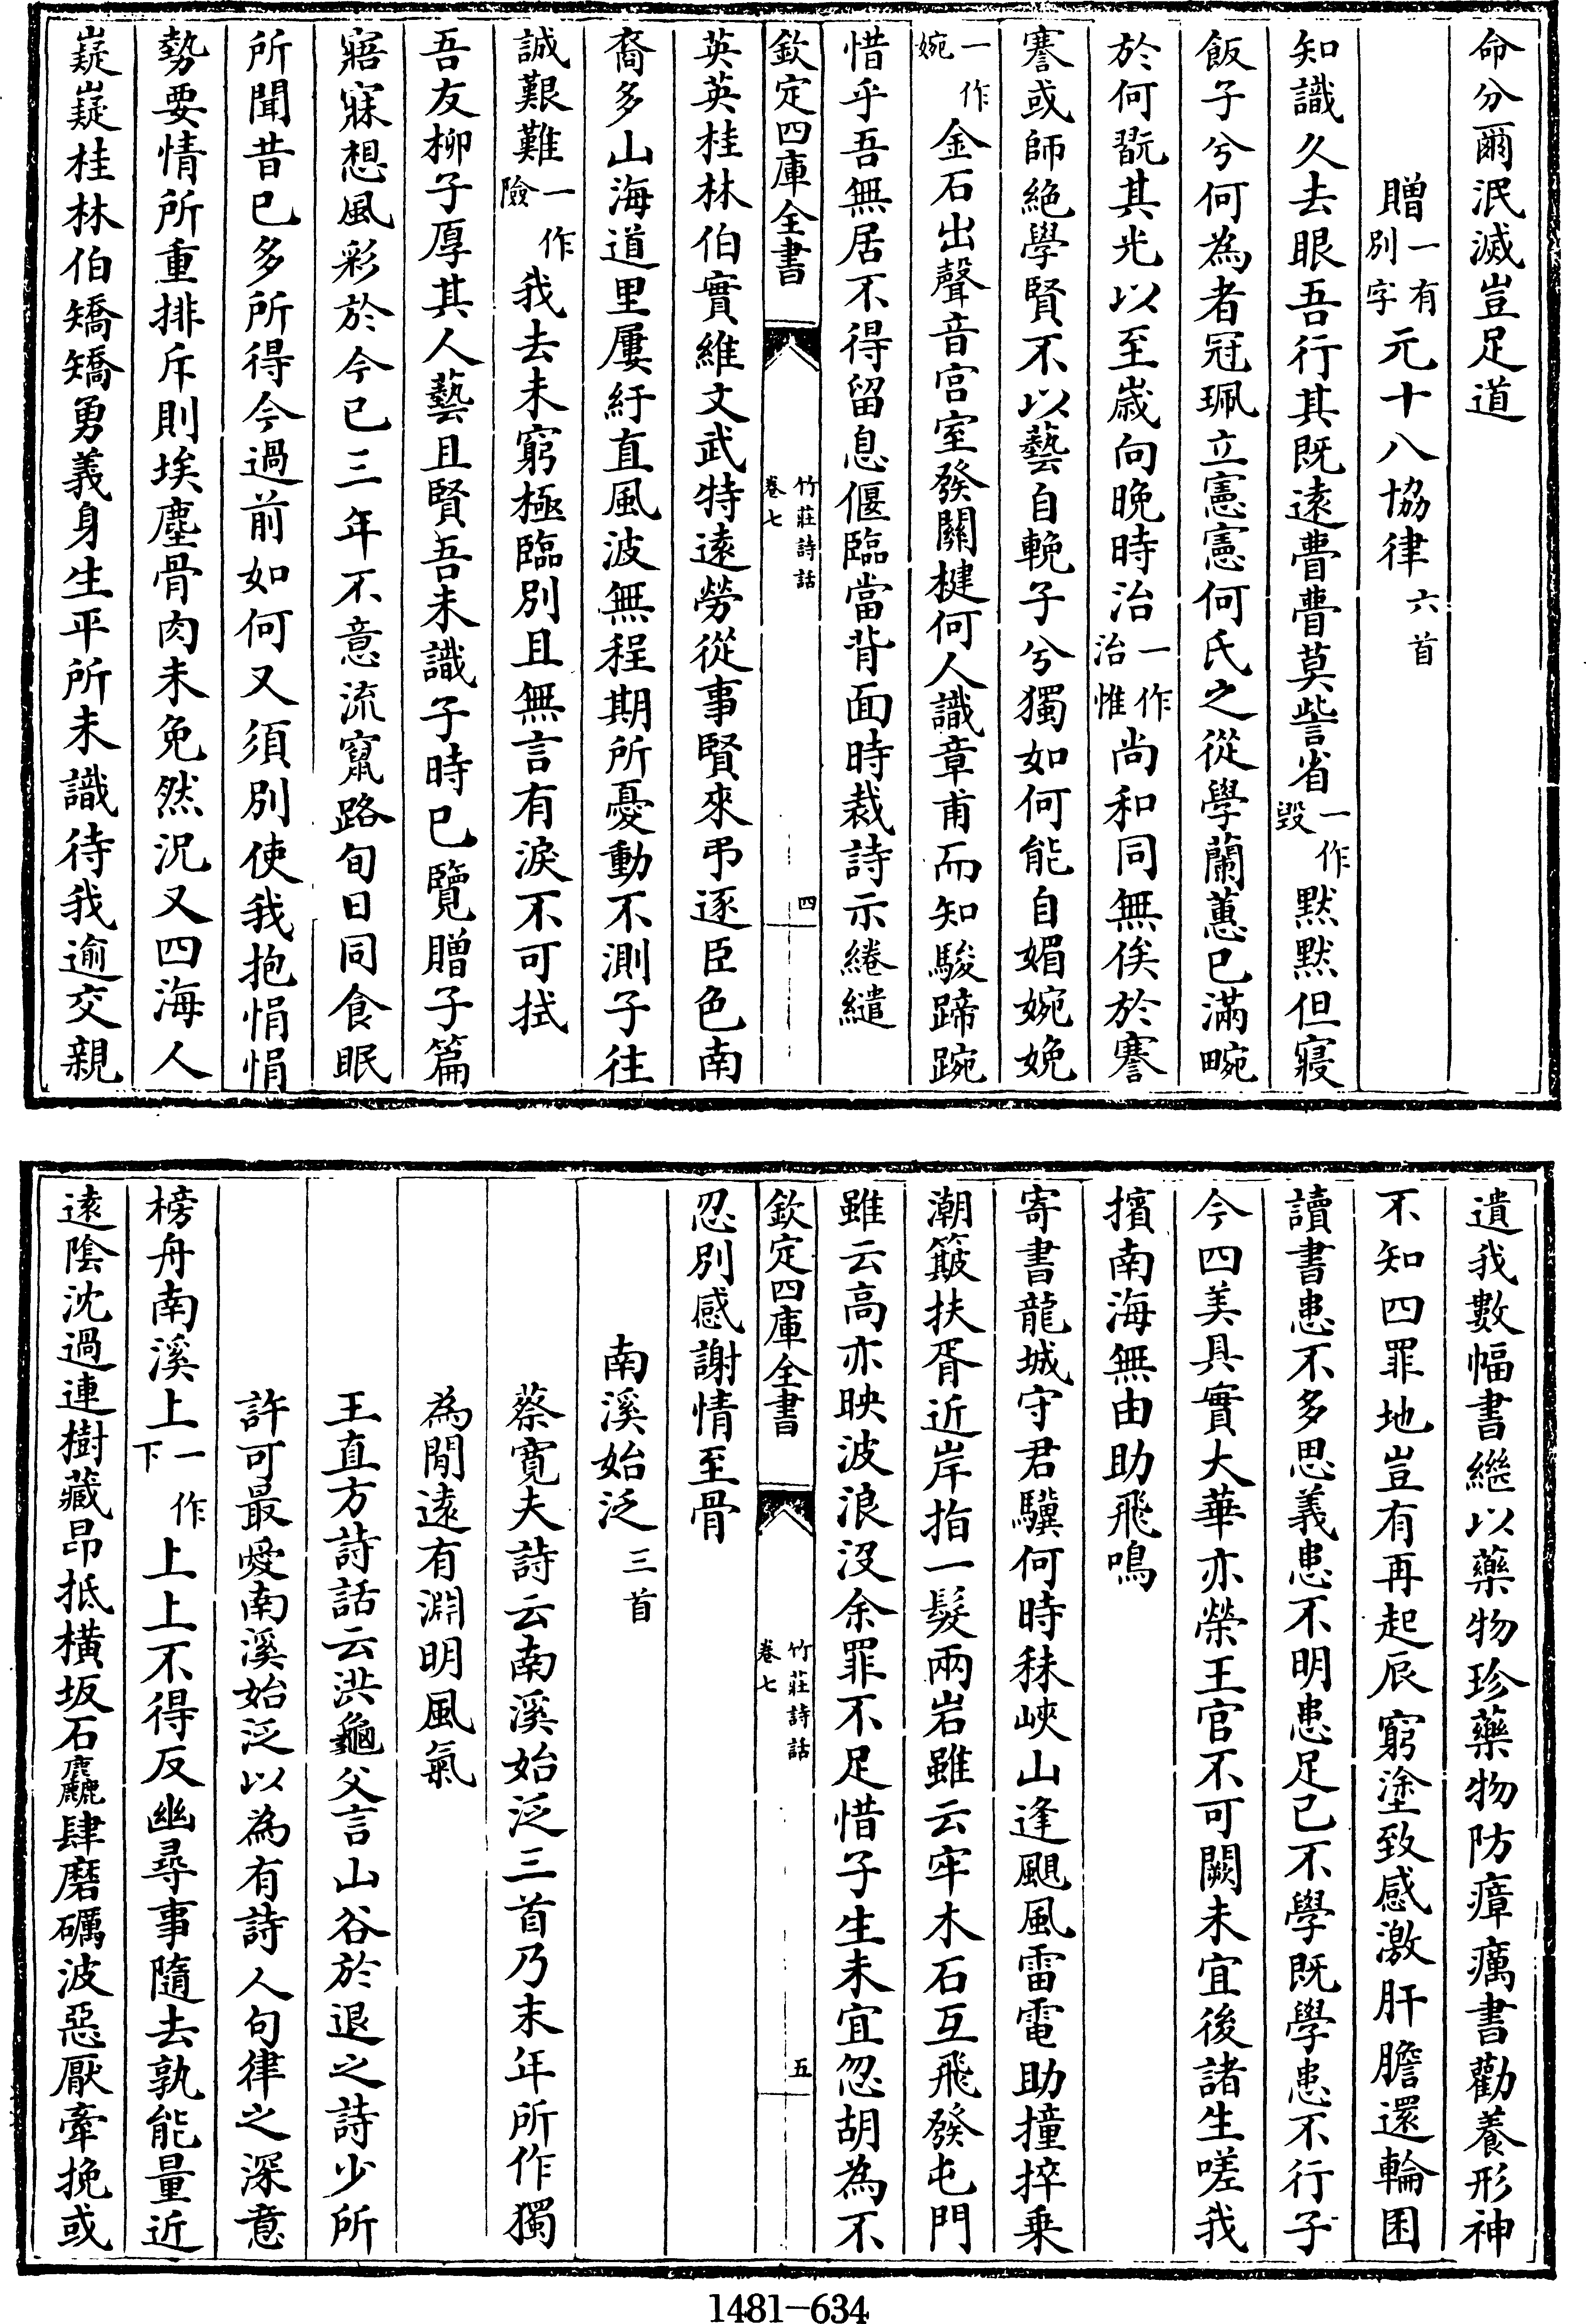 命分爾泯滅豈足道
贈一有別字元十八協律六首
知識久去眼吾行其既遠瞢瞢莫訾省一作毀黙黙但寢
飯子兮何為者冠珮立憲憲何氏之從學蘭蕙已滿畹
於何翫其光以至嵗向晚時治一作治惟尚和同無俟於謇
謇或師絶學賢不以藝自輓子兮獨如何能自媚婉娩
一作婉金石出聲音宫室發關楗何人識章甫而知駿蹄踠
惜乎吾無居不得留息偃臨當背面時裁詩示綣繾
欽定四庫全書
竹莊詩話
卷七
四
英英桂林伯實維文武特遠勞從事賢來弔逐臣色南
裔多山海道里屢紆直風波無程期所憂動不測子往
誠艱難一作險我去未窮極臨別且無言有淚不可拭
吾友柳子厚其人藝且賢吾未識子時已覽贈子篇
寤寐想風彩於今已三年不意流竄路旬日同食眠
所聞昔已多所得今過前如何又須別使我抱悁悁
勢要情所重排斥則埃塵骨肉未免然況又四海人
嶷嶷桂林伯矯矯勇義身生平所未識待我逾交親
遺我數幅書繼以藥物珍藥物防瘴癘書勸養形神
不知四罪地豈有再起辰窮塗致感激肝膽還輪囷
讀書患不多思義患不明患足已不學既學患不行子
今四美具實大華亦榮王官不可闕未宜後諸生嗟我
擯南海無由助飛鳴
寄書龍城守君驥何時秣峽山逢颶風雷電助撞捽乗
潮簸扶胥近岸指一髮兩岩雖云牢木石互飛發屯門
雖云高亦映波浪沒余罪不足惜子生未宜忽胡為不
欽定四庫全書
竹莊詩話
卷七
五
忍別感謝情至骨
南溪始泛三首
蔡寬夫詩云南溪始泛三首乃末年所作獨
為閒遠有淵明風氣
王直方詩話云洪龜父言山谷於退之詩少所
許可最愛南溪始泛以為有詩人句律之深意
榜舟南溪上一作下上上不得反幽尋事隨去孰能量近
遠陰沈過連樹藏昻抵横坂石麤肆磨礪波惡厭牽挽或
1481-634